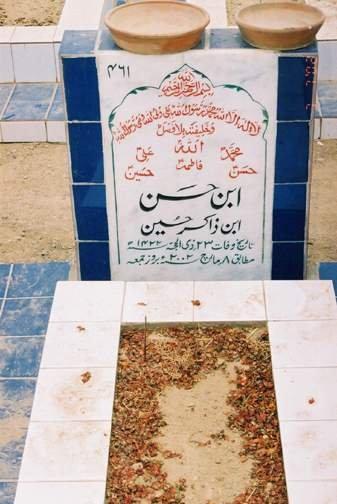 ۴۶۱
بسم اللہ الرحمن الرحیم
لا الہ الا اللہ محمد رسول اللہ علی ولی اللہ وصی رسول اللہ
وخلیفتہ بلا فصل
اللہ
محمدؐ فاطمہؑ علیؑ
حسنؑ حسینؑ
ابن حسن
ابن ذاکر حسین
تاریخ وفات ۲۳ ذی الحجہ ۱۴۲۲ھ
مطابق ۸ مارچ ۲۰۰۲ء بروز جمعہ